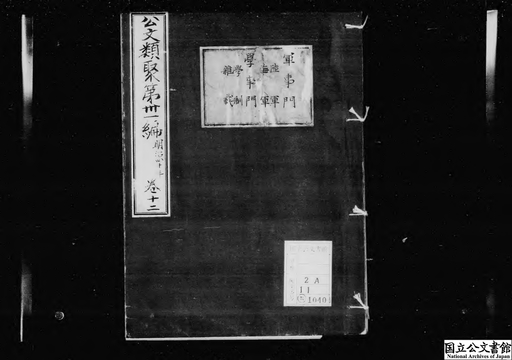 公文類聚第卅一編 明治四十年 卷十二
軍事門
陸軍
海軍
學事門
學制
雜載
2A
11
1040
国立公文書館
National Archives of Japan